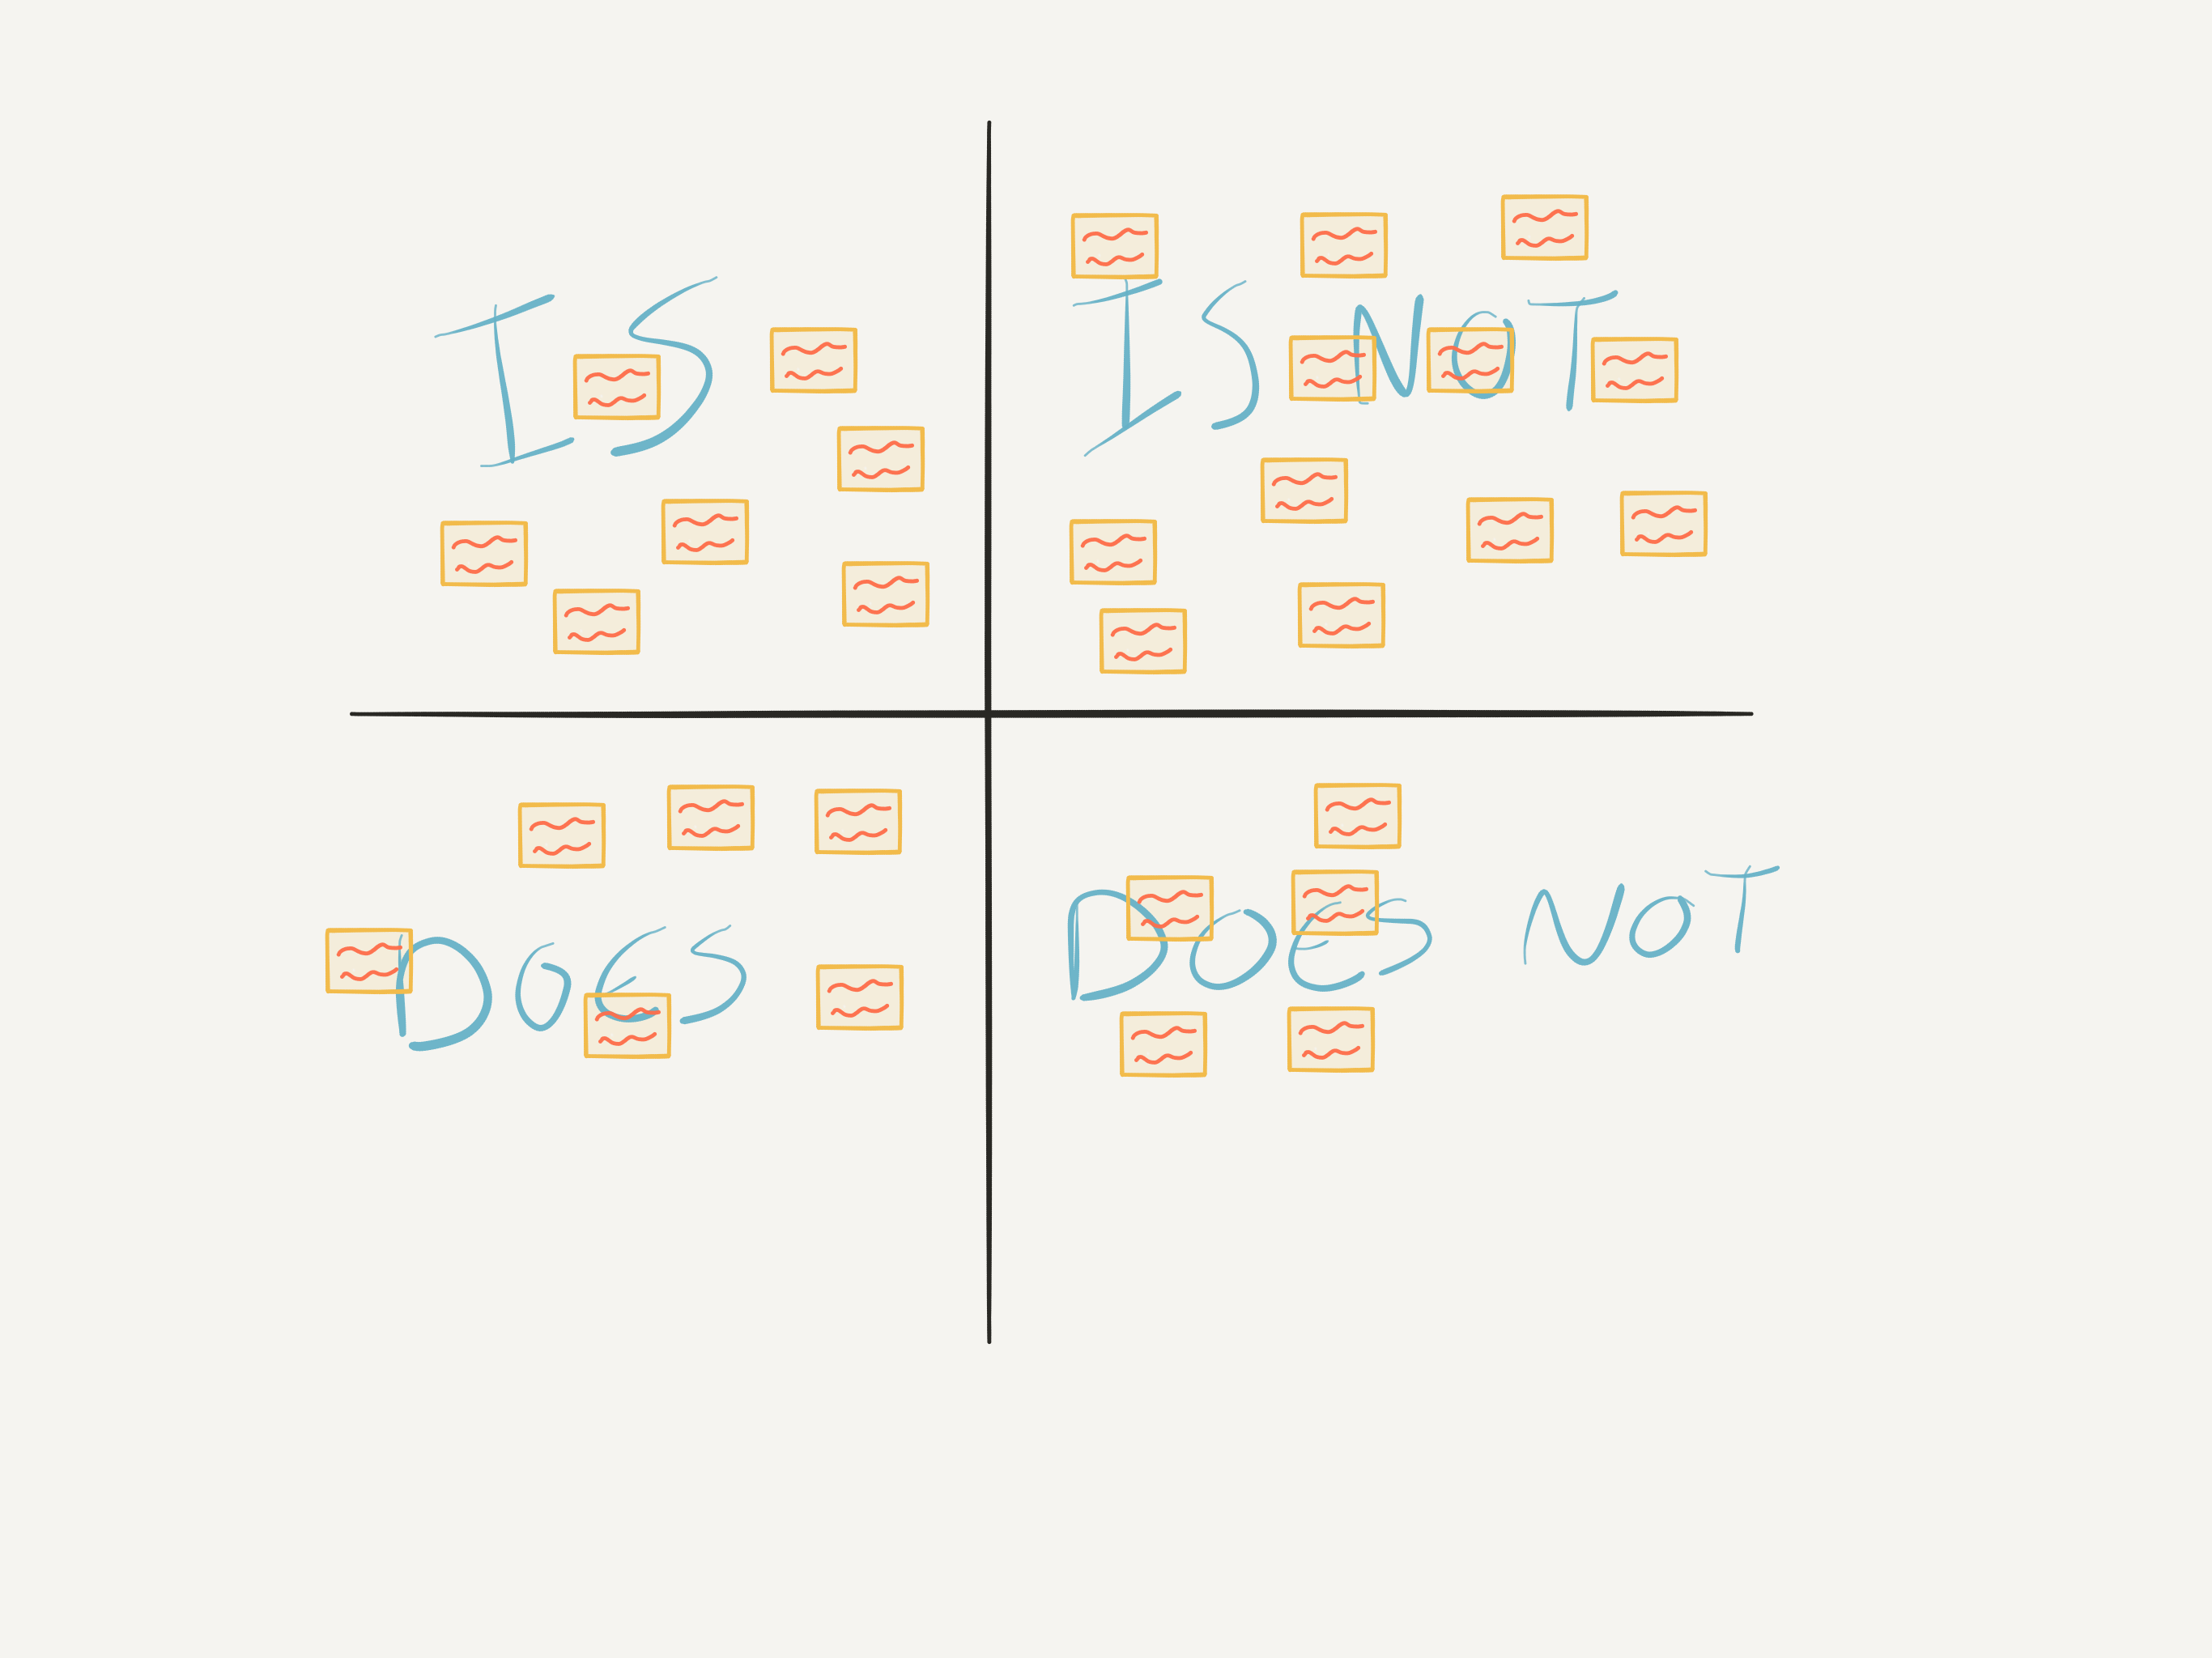 IS
IS NOT
DOES
DOES NOT